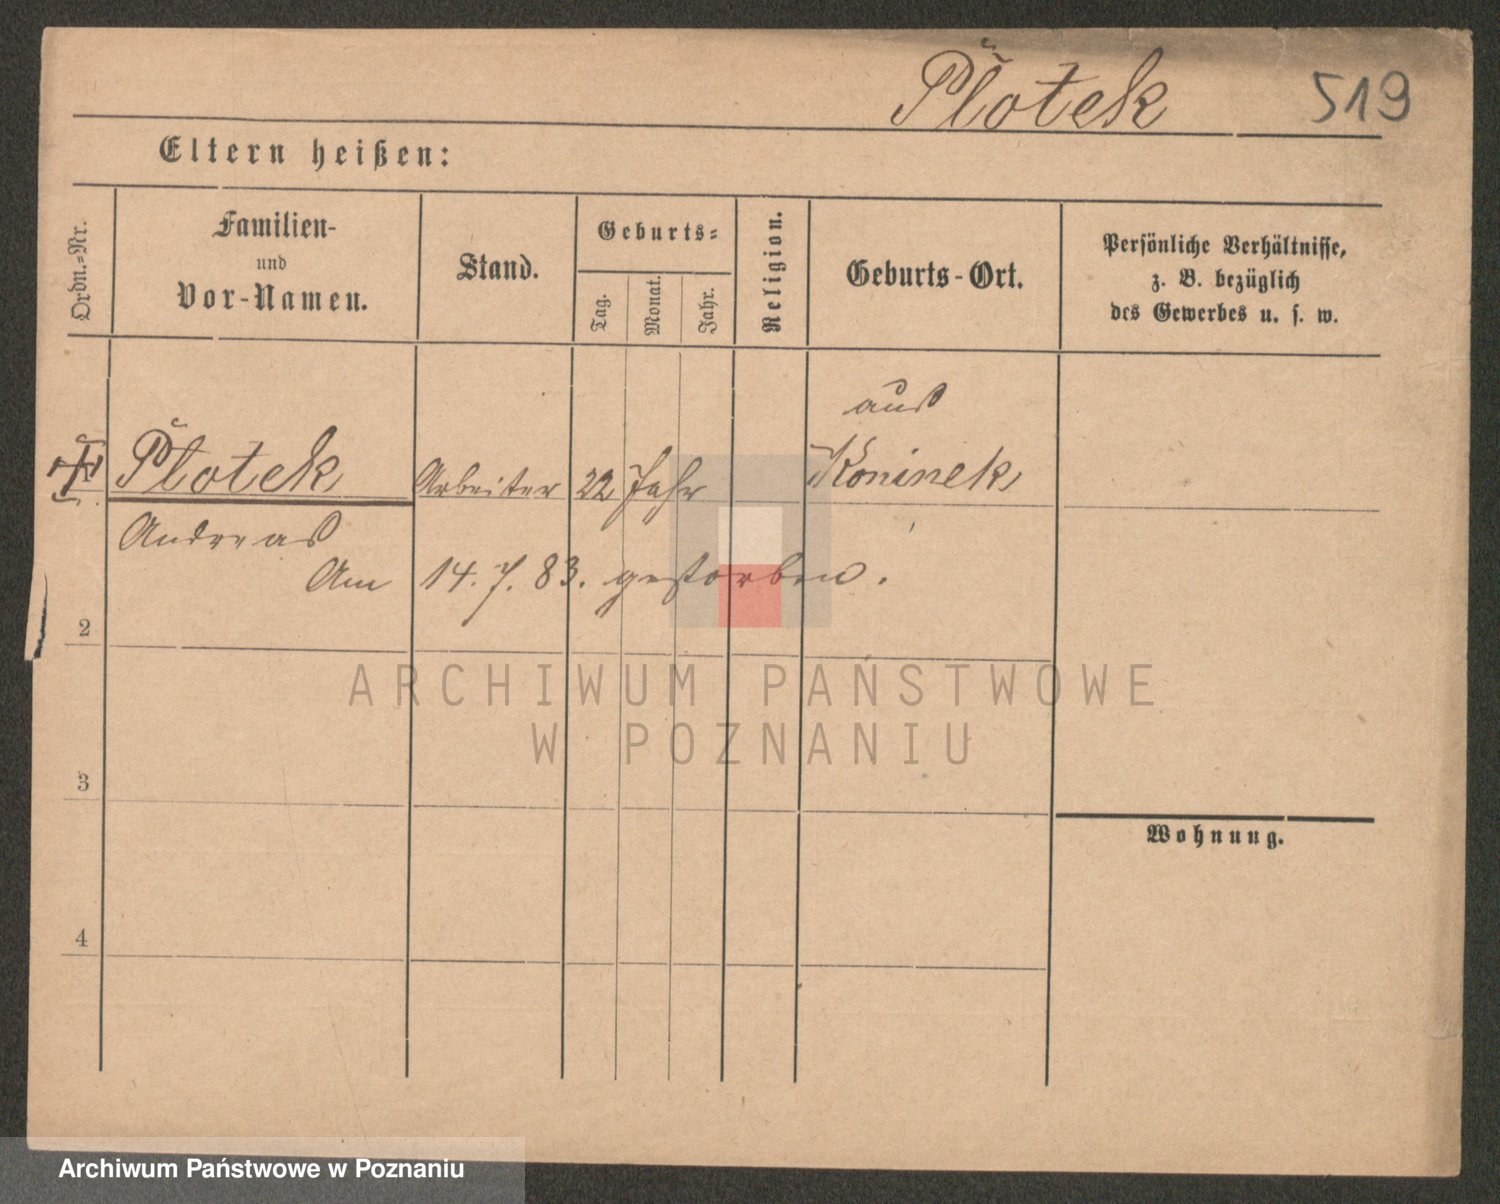 Plotek 519
Eltern heißen:
Ordn.-Nr.
Familien-
und
Vor-Namen.
Stand.
Geburts-
Tag.
Monat.
Jahr.
Religion.
Geburts-Ort.
Persönliche Verhältnisse,
z. B. bezüglich
des Gewerbes u. s. w.
aus
Plotek Arbeiter 22 Jahr Koninek
Andreas
Am 14. 7. 83. gestorben.
2
ARCHIWUM PAŃSTWOWE
W POZNANIU
3
Wohnung.
4
Archiwum Państwowe w Poznaniu